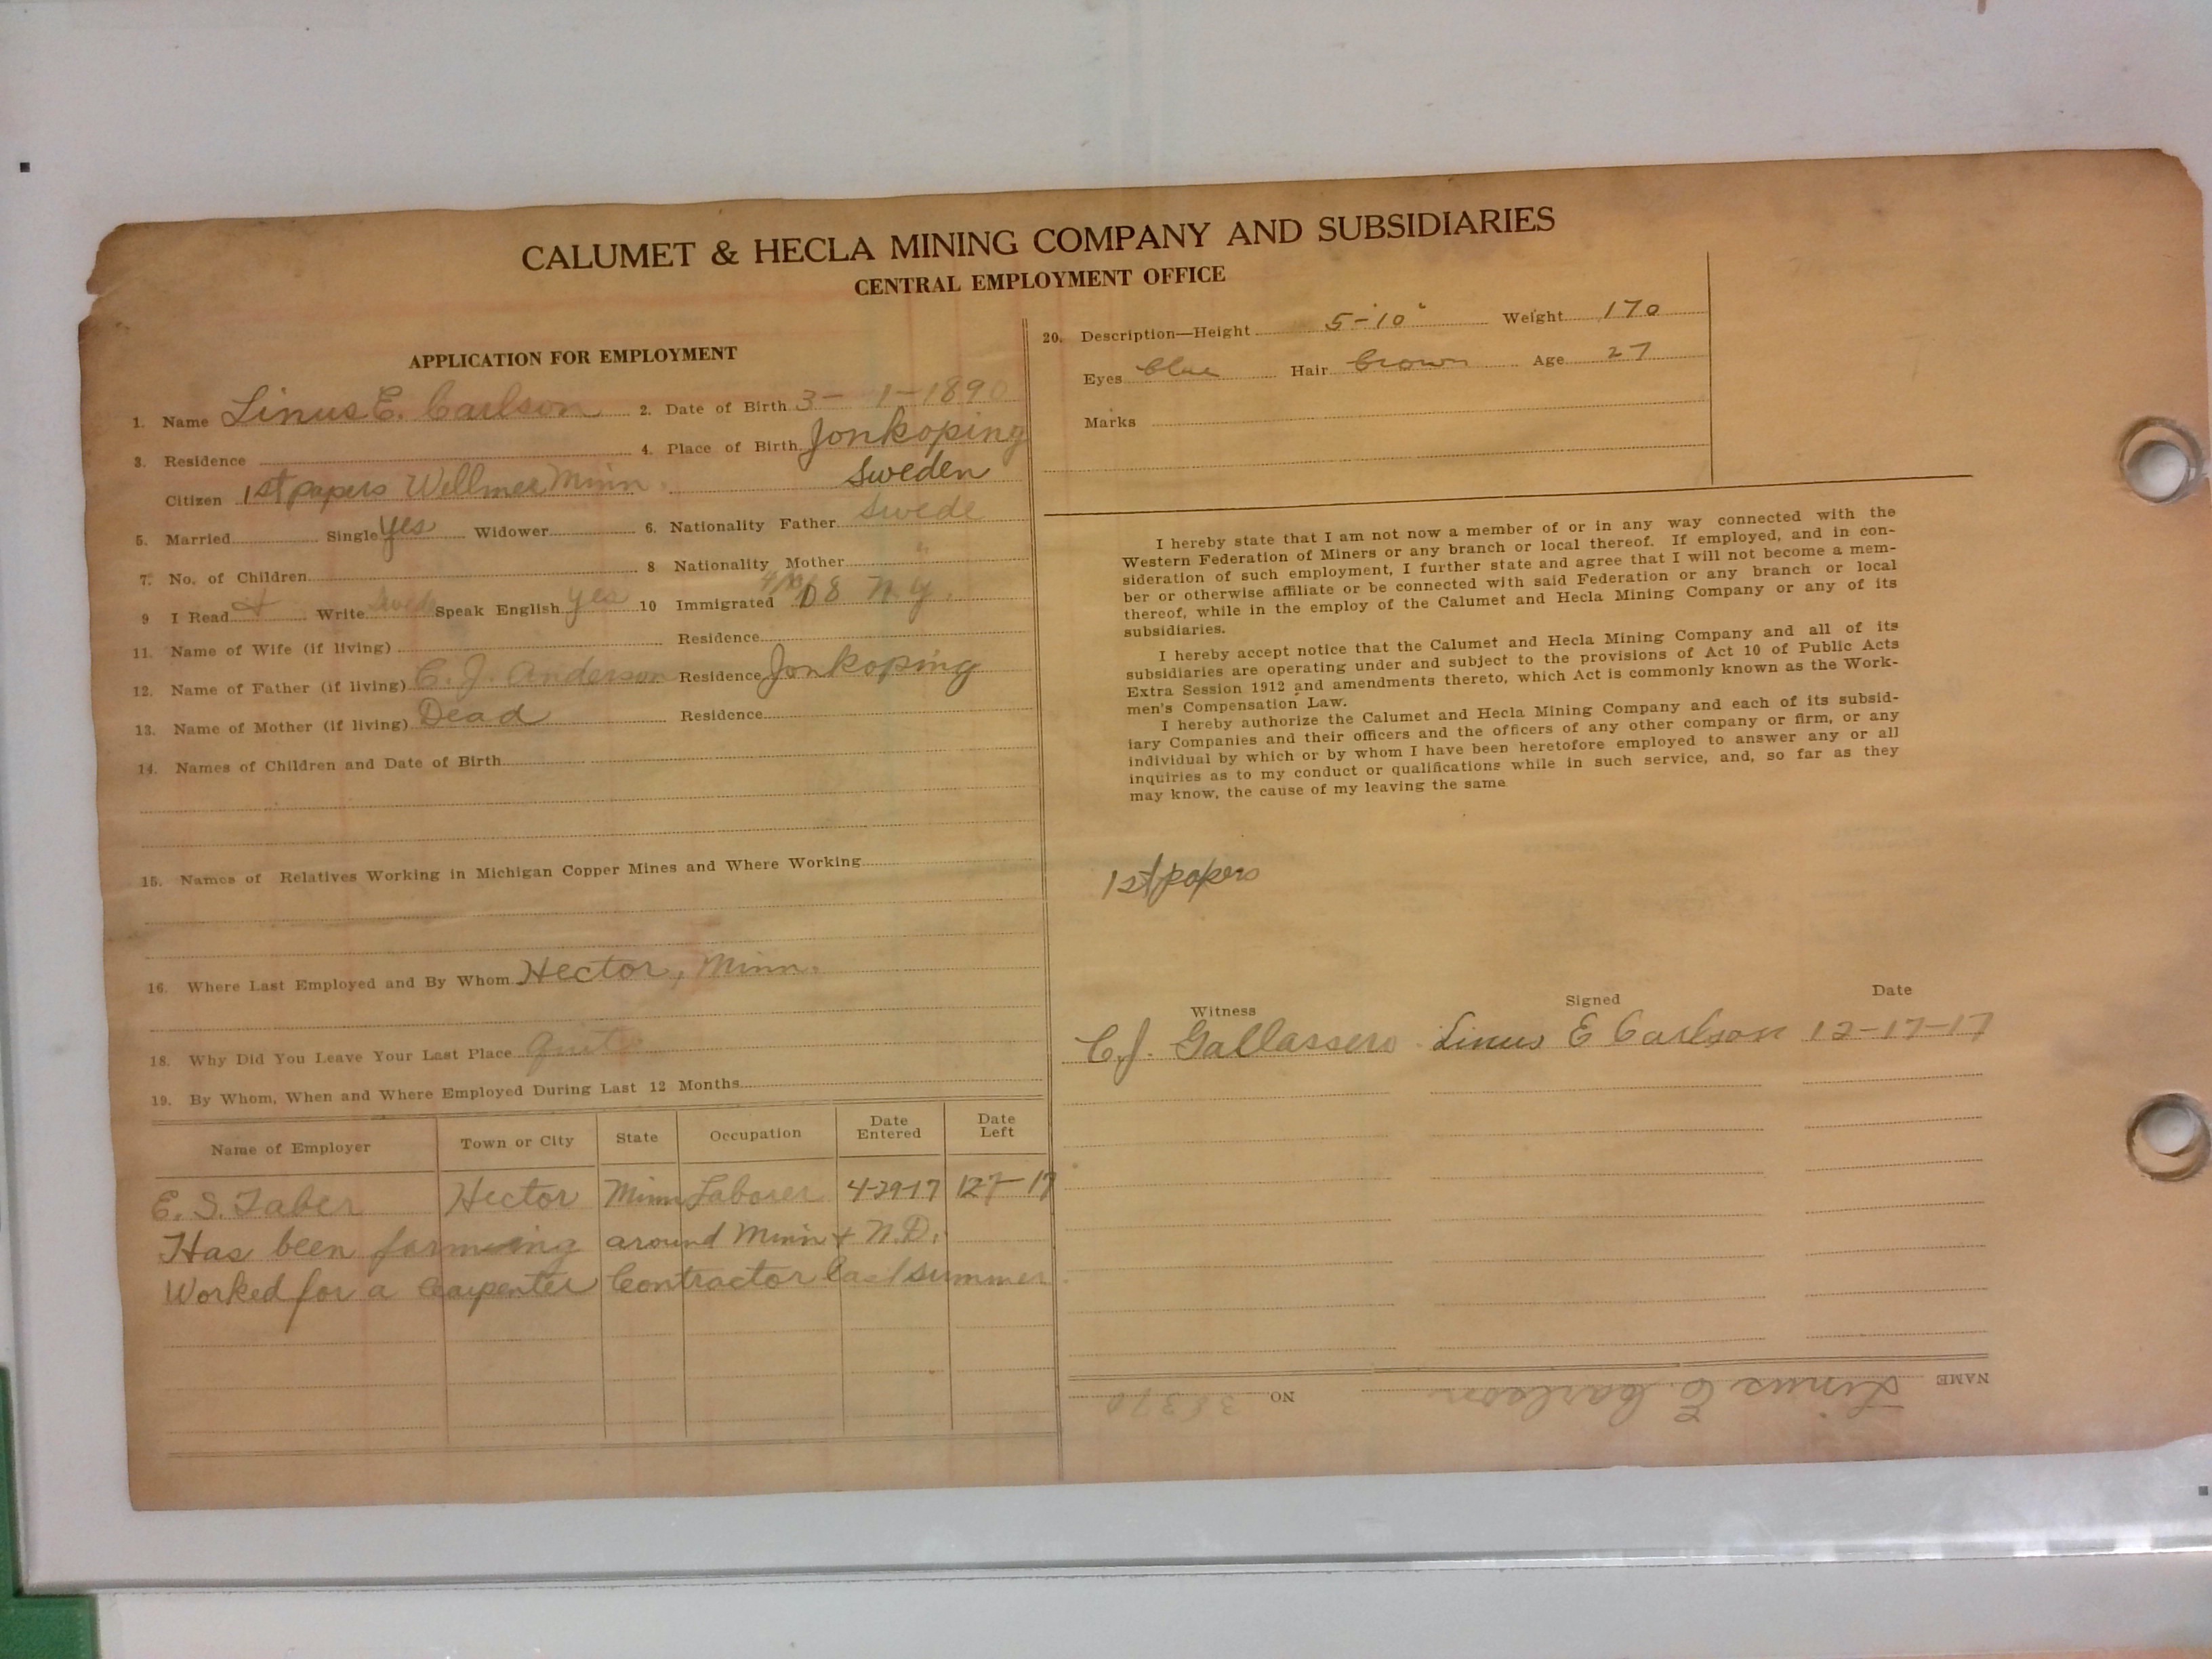 CALUMET & HECLA MINING COMPANY AND SUBSIDIARIES
CENTRAL EMPLOYMENT OFFICE
APPLICATION FOR EMPLOYMENT
1. Name Linus E. Carlson 2. Date of Birth 3- 1-1890
3. Residence 4. Place of Birth Jonkoping
Citizen 1st papers Wellmer Minn. Sweden
5. Married Single yes Widower 6. Nationality Father Swede
7. No. of Children 8 Nationality Mother "
9 I Read & Write Swede Speak English yes 10 Immigrated 08 N.Y.
11. Name of Wife (if living) Residence
12. Name of Father (if living) C. J. Anderson Residence Jonkoping
13. Name of Mother (if living) Dead Residence
14. Names of Children and Date of Birth
15. Names of Relatives Working in Michigan Copper Mines and Where Working
16. Where Last Employed and By Whom Hector, Minn.
18. Why Did You Leave Your Last Place Quit
19. By Whom, When and Where Employed During Last 12 Months
Name of Employer Town or City State Occupation Date Entered Date Left
E. S. Taber Hector Minn Laborer 4-29-17 12-7-17
Has been farming around Minn & N.D.
Worked for a Carpenter Contractor last summer
20. Description—Height 5-10" Weight 170
Eyes blue Hair brown Age 27
Marks
I hereby state that I am not now a member of or in any way connected with the
Western Federation of Miners or any branch or local thereof. If employed, and in con-
sideration of such employment, I further state and agree that I will not become a mem-
ber or otherwise affiliate or be connected with said Federation or any branch or local
thereof, while in the employ of the Calumet and Hecla Mining Company or any of its
subsidiaries.
I hereby accept notice that the Calumet and Hecla Mining Company and all of its
subsidiaries are operating under and subject to the provisions of Act 10 of Public Acts
Extra Session 1912 and amendments thereto, which Act is commonly known as the Work-
men's Compensation Law.
I hereby authorize the Calumet and Hecla Mining Company and each of its subsid-
iary Companies and their officers and the officers of any other company or firm, or any
individual by which or by whom I have been heretofore employed to answer any or all
inquiries as to my conduct or qualifications while in such service, and, so far as they
may know, the cause of my leaving the same
1st papers
Witness Signed Date
C.J. Gallassero Linus E Carlson 12-17-17
NAME Linus E. Carlson NO 38370